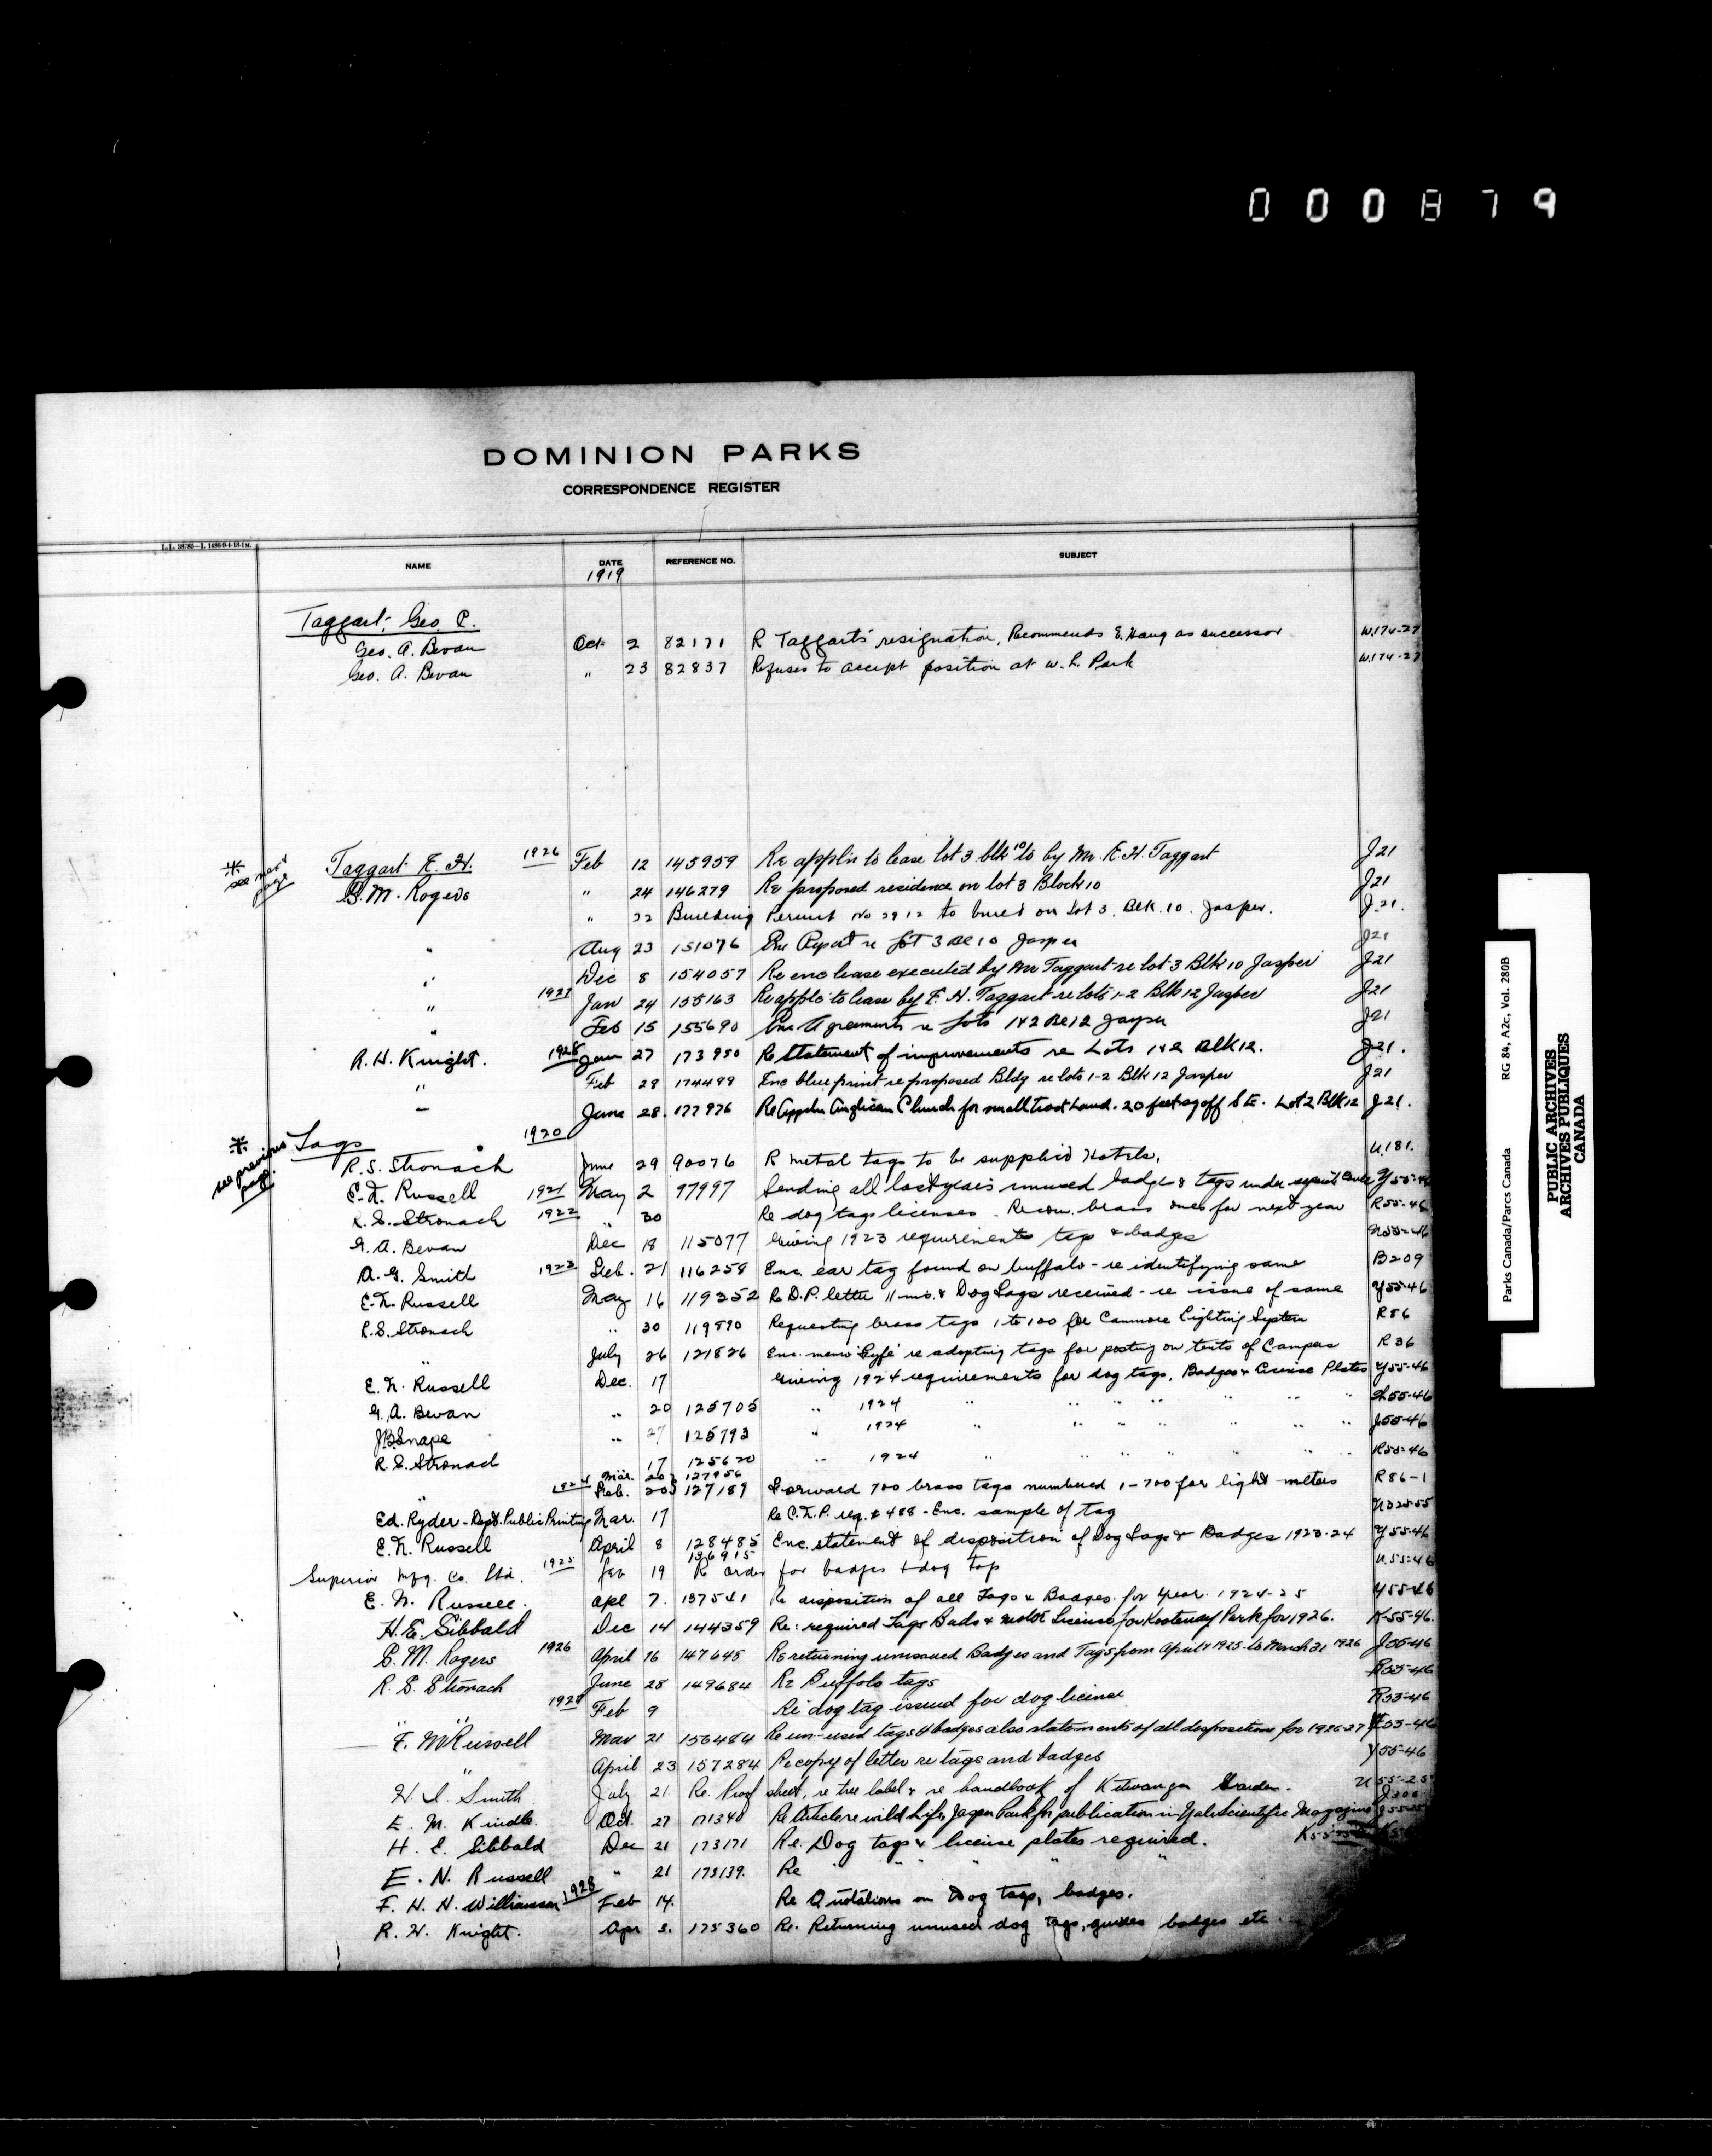 000879
DOMINION PARKS
CORRESPONDENCE REGISTER
NAME DATE REFERENCE NO. SUBJECT
1919
Taggart, Geo. P.
Geo. A. Bevan Oct. 2 82171 R Taggart's resignation, Recommends E. Haug as successor W.174-27
Geo. A. Bevan " 23 82837 Refuses to accept position at W. L. Park W.174-27
* see next page
Taggart E. H. 1926 Feb 12 145959 Re appl'n to lease lot 3 blk 10 by Mr. E. H. Taggart J21
G. M. Rogers " 24 146279 Re proposed residence on lot 3 Block 10 J21
" 22 Building Permit No 2912 to build on Lot 3, Blk. 10. Jasper. J.21.
" Aug 23 151076 Enc Report re Lot 3 Bl 10 Jasper J21
" Dec 8 154057 Re enc lease executed by Mr Taggart re lot 3 Blk 10 Jasper J21
" 1927 Jan 24 155163 Re applc to lease by E. H. Taggart re lots 1-2 Blk 12 Jasper J21
" Feb 15 155690 Enc Agreements re Lots 1&2 Bl 12 Jasper J21
R. H. Knight. 1928 Jan 27 173950 Re Statement of improvements re Lots 1&2 Blk 12. J21.
" Feb 28 174499 Enc blue print re proposed Bldg re lots 1-2 Blk 12 Jasper J21
" June 28. 177976 Re Appln Anglican Church for small tract Land. 20 feet off S.E. Lot 2 Blk 12 J21.
* see previous page.
Tags 1920
R. S. Stronach June 29 90076 R metal tags to be supplied Hotels. U.181.
E. N. Russell 1921 May 2 97997 Sending all last year's unused badges & tags under separate cover Y55-46
R. S. Stronach 1922 " 30 Re dog tags licenses. Recom. brass ones for next year R55-46
G. A. Bevan Dec 18 115077 Giving 1923 requirements tags & badges
A. G. Smith 1923 Feb. 21 116258 Enc. ear tag found on buffalo - re identifying same B209
E. N. Russell May 16 119252 Re D.P. letter 11 inst. & Dog Tags received - re issue of same Y55-46
R. S. Stronach " 30 119590 Requesting brass tags 1 to 100 for Canmore Lighting System R86
" July 26 121826 Enc. memo Fyfe re adopting tags for posting on tents of Campers R36
E. N. Russell Dec. 17 Giving 1924 requirements for dog tags, Badges & License Plates Y55-46
G. A. Bevan " 20 125705 " 1924 " " " " " " "
J.B. Snape " 27 125793 " 1924 " " " " " " " J55-46
R. S. Stronach 17 125620 " 1924 " " " " " " R55-46
Mar. 20 127956
" 1924 Feb. 20 127189 Forward 700 brass tags numbered 1-700 for light meters R86-1
Ed. Ryder - Dept. Public Printing Mar. 17 Re C.N.P. req. # 488 - Enc. sample of tag
E. N. Russell April 8 128485 Enc. statement of disposition of Dog Tags & Badges 1923-24 Y55-46
136915
Superior Mfg. Co. Ltd. 1925 Jan 19 Re order for badges & dog tags U.55-46
E. N. Russell. Apl 7. 137541 Re disposition of all Tags & Badges for year 1924-25 Y55-46
H. E. Sibbald Dec 14 144359 Re: required Tags Bads & motor License for Kootenay Park for 1926. K55-46.
G. M. Rogers 1926 April 16 147645 Re returning unissued Badges and Tags from April 1 1925 to March 31 1926 J55-46
R. S. Stronach June 28 149684 Re Buffalo tags R55-46
" " 1927 Feb 9 Re dog tag issued for dog license R55-46
F. M. Russell Mar 21 156484 Re un-used tags & badges also statements of all dispositions for 1926-27 Y55-46
" April 23 157284 Re copy of letter re tags and badges Y55-46
H. I. Smith July 21 Re. Proof sheet, re tree label & re handbook of Kitwanga Garden. U55-25
J300
E. M. Kindle Oct. 27 171340 Re Article re wild Life, Jasper Park for publication in Yale Scientific Magazine
H. E. Sibbald Dec 21 173171 Re. Dog tags & license plates required.
E. N. Russell " 21 173139. Re " " " " "
F. H. H. Williamson 1928 Feb 14. Re Quotations on Dog tags, badges.
R. H. Knight. Apr 3. 175360 Re. Returning unused dog tags, guides badges etc.
Parks Canada/Parcs Canada RG 84, A2c, Vol. 280B
PUBLIC ARCHIVES
ARCHIVES PUBLIQUES
CANADA